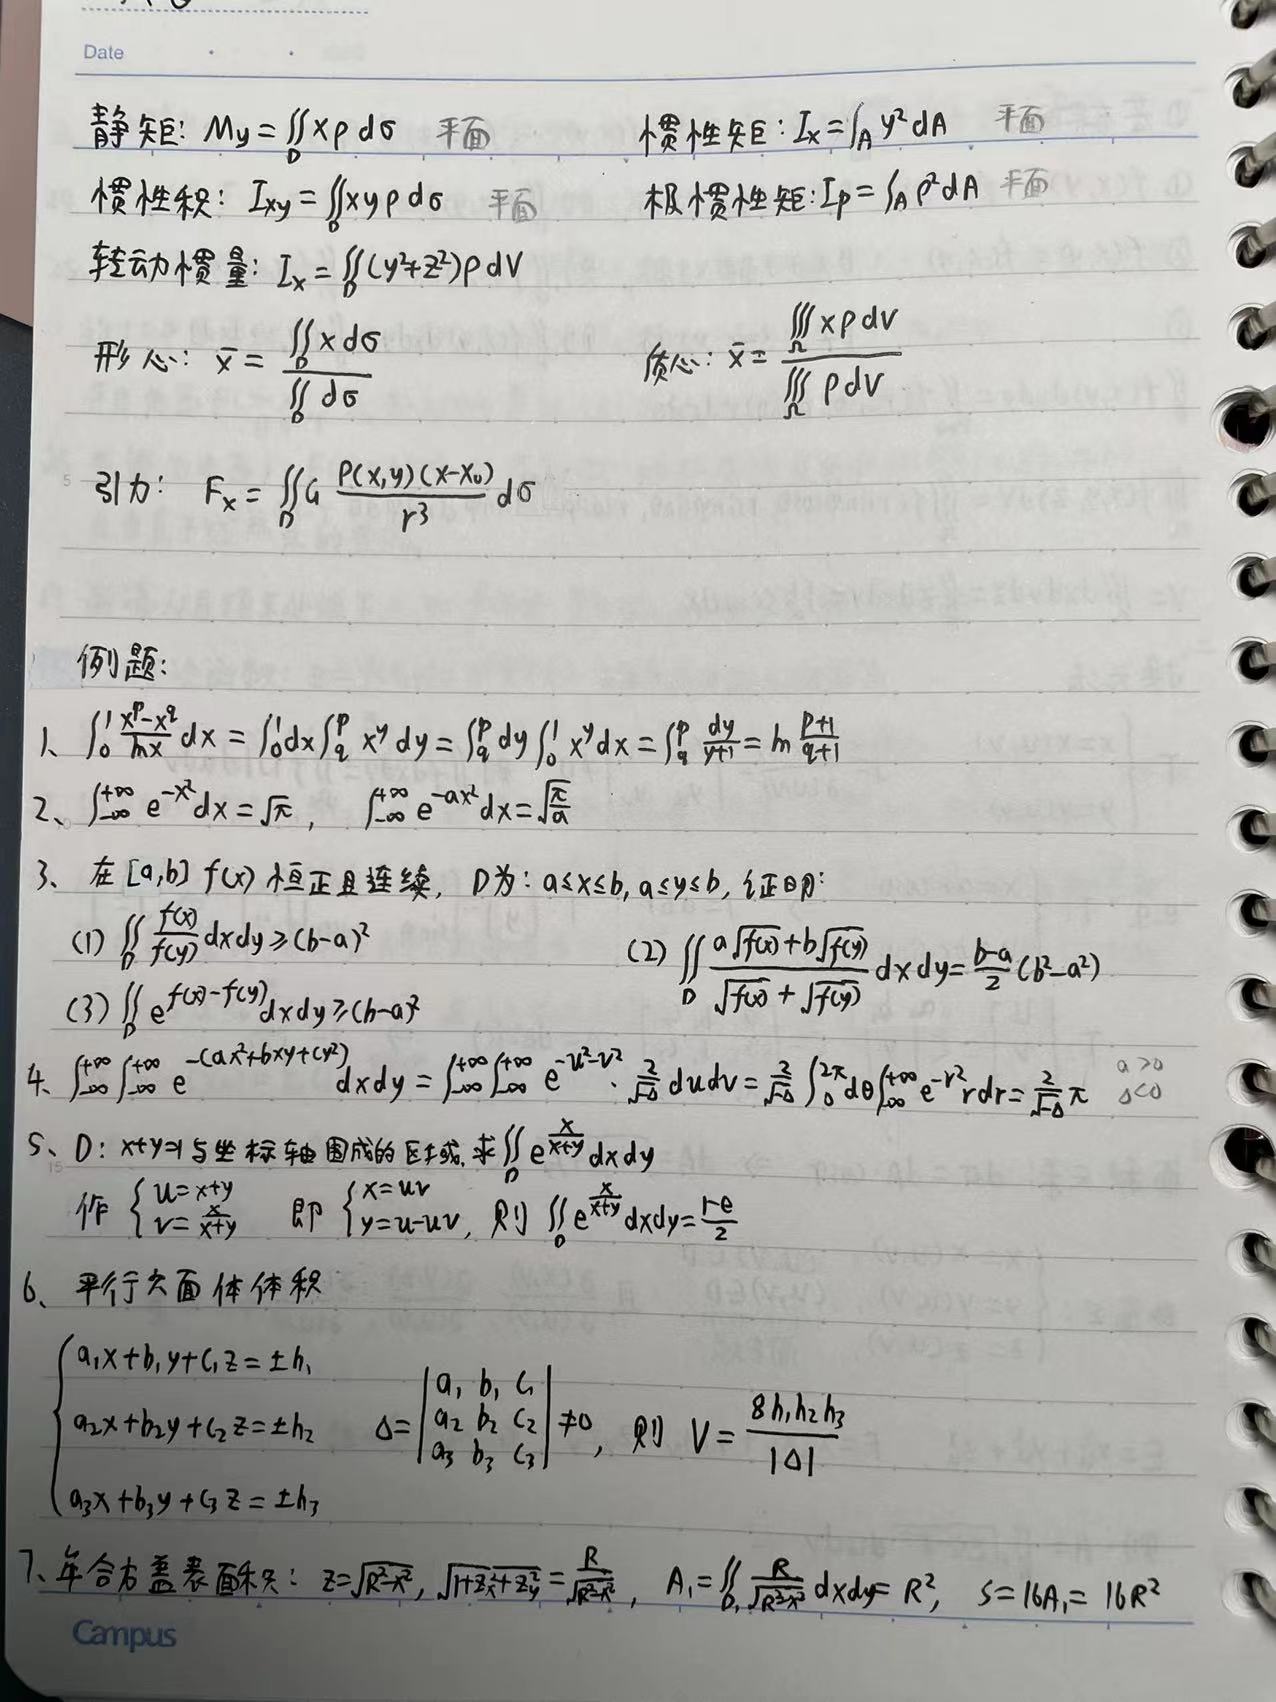 Date
静矩: My = ∬_D xρdσ 平面 惯性矩: Ix = ∫_A y²dA 平面
惯性积: Ixy = ∬_D xyρdσ 平面 极惯性矩: Ip = ∫_A ρ²dA 平面
转动惯量: Ix = ∬_D (y²+z²)ρdV
形心: x̄ = ∬_D xdσ / ∬_D dσ 质心: x̄ = ∭_Ω xρdV / ∭_Ω ρdV
5
引力: Fx = ∬_D G ρ(x,y)(x-x₀)/r³ dσ
例题:
1、∫₀¹ (x^p-x^q)/lnx dx = ∫₀¹dx∫_q^p x^y dy = ∫_q^p dy∫₀¹ x^y dx = ∫_q^p dy/(y+1) = ln (p+1)/(q+1)
2、∫_{-∞}^{+∞} e^{-x²}dx = √π, ∫_{-∞}^{+∞} e^{-ax²}dx = √(π/a)
3、在[a,b] f(x)恒正且连续, D为: a≤x≤b, a≤y≤b, 证明:
(1) ∬_D f(x)/f(y) dxdy ≥ (b-a)² (2) ∬_D (a√f(x)+b√f(y))/(√f(x)+√f(y)) dxdy = (b-a)/2 (b²-a²)
(3) ∬_D e^{f(x)-f(y)}dxdy ≥ (b-a)²
4、∫_{-∞}^{+∞}∫_{-∞}^{+∞} e^{-(ax²+bxy+cy²)}dxdy = ∫_{-∞}^{+∞}∫_{-∞}^{+∞} e^{-u²-v²}·2/√-Δ dudv = 2/√-Δ ∫₀^{2π}dθ∫_{-∞}^{+∞} e^{-r²}rdr = 2/√-Δ π a>0 Δ<0
5、D: x+y=1与坐标轴围成的区域, 求∬_D e^{x/(x+y)}dxdy
15
作 { u=x+y v=x/(x+y) 即 { x=uv y=u-uv, 则 ∬_D e^{x/(x+y)}dxdy = (1-e)/2
6、平行六面体体积
{ a₁x+b₁y+c₁z=±h₁
a₂x+b₂y+c₂z=±h₂ Δ= |a₁ b₁ c₁ a₂ b₂ c₂ a₃ b₃ c₃| ≠0, 则 V = 8h₁h₂h₃/|Δ|
a₃x+b₃y+c₃z=±h₃
7、牟合方盖表面积: z=√(R²-x²), √(1+z_x²+z_y²) = R/√(R²-x²), A₁=∬_{D₁} R/√(R²-x²) dxdy = R², S=16A₁=16R²
Campus